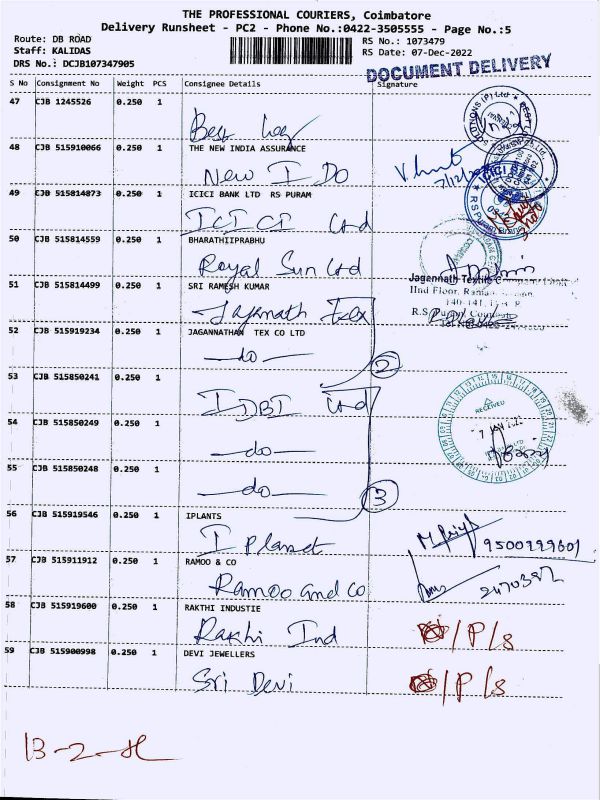 THE PROFESSIONAL COURIERS, Coimbatore
Delivery Runsheet - PC2 - Phone No.:0422-3505555 - Page No.:5
Route: DB ROAD RS No.: 1073479
Staff: KALIDAS RS Date: 07-Dec-2022
DRS No.: DCJB107347905 DOCUMENT DELIVERY
S No Consignment No Weight PCS Consignee Details Signature
47 CJB 1245526 0.250 1
48 CJB 515910066 0.250 1 THE NEW INDIA ASSURANCE
New I DO
49 CJB 515814873 0.250 1 ICICI BANK LTD RS PURAM
ICICI Ltd
50 CJB 515814559 0.250 1 BHARATHIIPRABHU
Royal Sun Ltd
51 CJB 515814499 0.250 1 SRI RAMESH KUMAR
Jagannath Textile
IInd Floor,
140-141,
R.S Puram
Jaganath Tex
52 CJB 515919234 0.250 1 JAGANNATHAN TEX CO LTD
do
2
53 CJB 515850241 0.250 1
IDBI Ltd
RECEIVED
54 CJB 515850249 0.250 1
do
55 CJB 515850248 0.250 1
do
3
56 CJB 515919546 0.250 1 IPLANTS
I Planet
9500999601
57 CJB 515911912 0.250 1 RAMOO & CO
Ramoo and co
58 CJB 515919600 0.250 1 RAKTHI INDUSTIE
Rakhi Ind /P/s
59 CJB 515900998 0.250 1 DEVI JEWELLERS
Sri Devi /P/s